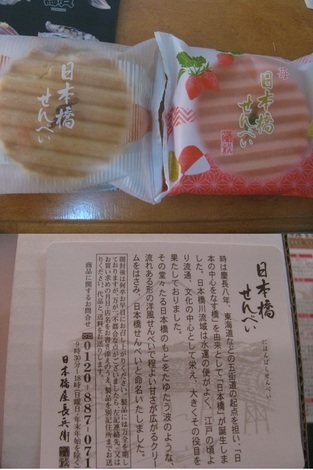 日本橋
せんべい
日本橋
せんべい
日本橋
せんべい
にほんばしせんべい
時は慶長八年、東海道などの五街道の起点を担い、「日
本の中心をなす橋」を由来として「日本橋」が誕生しま
した。日本橋川流域は水運の便がよく、江戸の頃よ
り流通、文化の中心として栄え、大きくその役目を
果たしておりました。
その堂々たる日本橋のもとをたゆたう波のような、
流れある形の洋風せんべいで程よい甘さが広がるクリー
ムをはさみ、日本橋せんべいと命名いたしました。
商品に関するお問合せ
0120-887-071
9時30分〜18時(日曜・年末年始を除く)
日本橋屋長兵衛